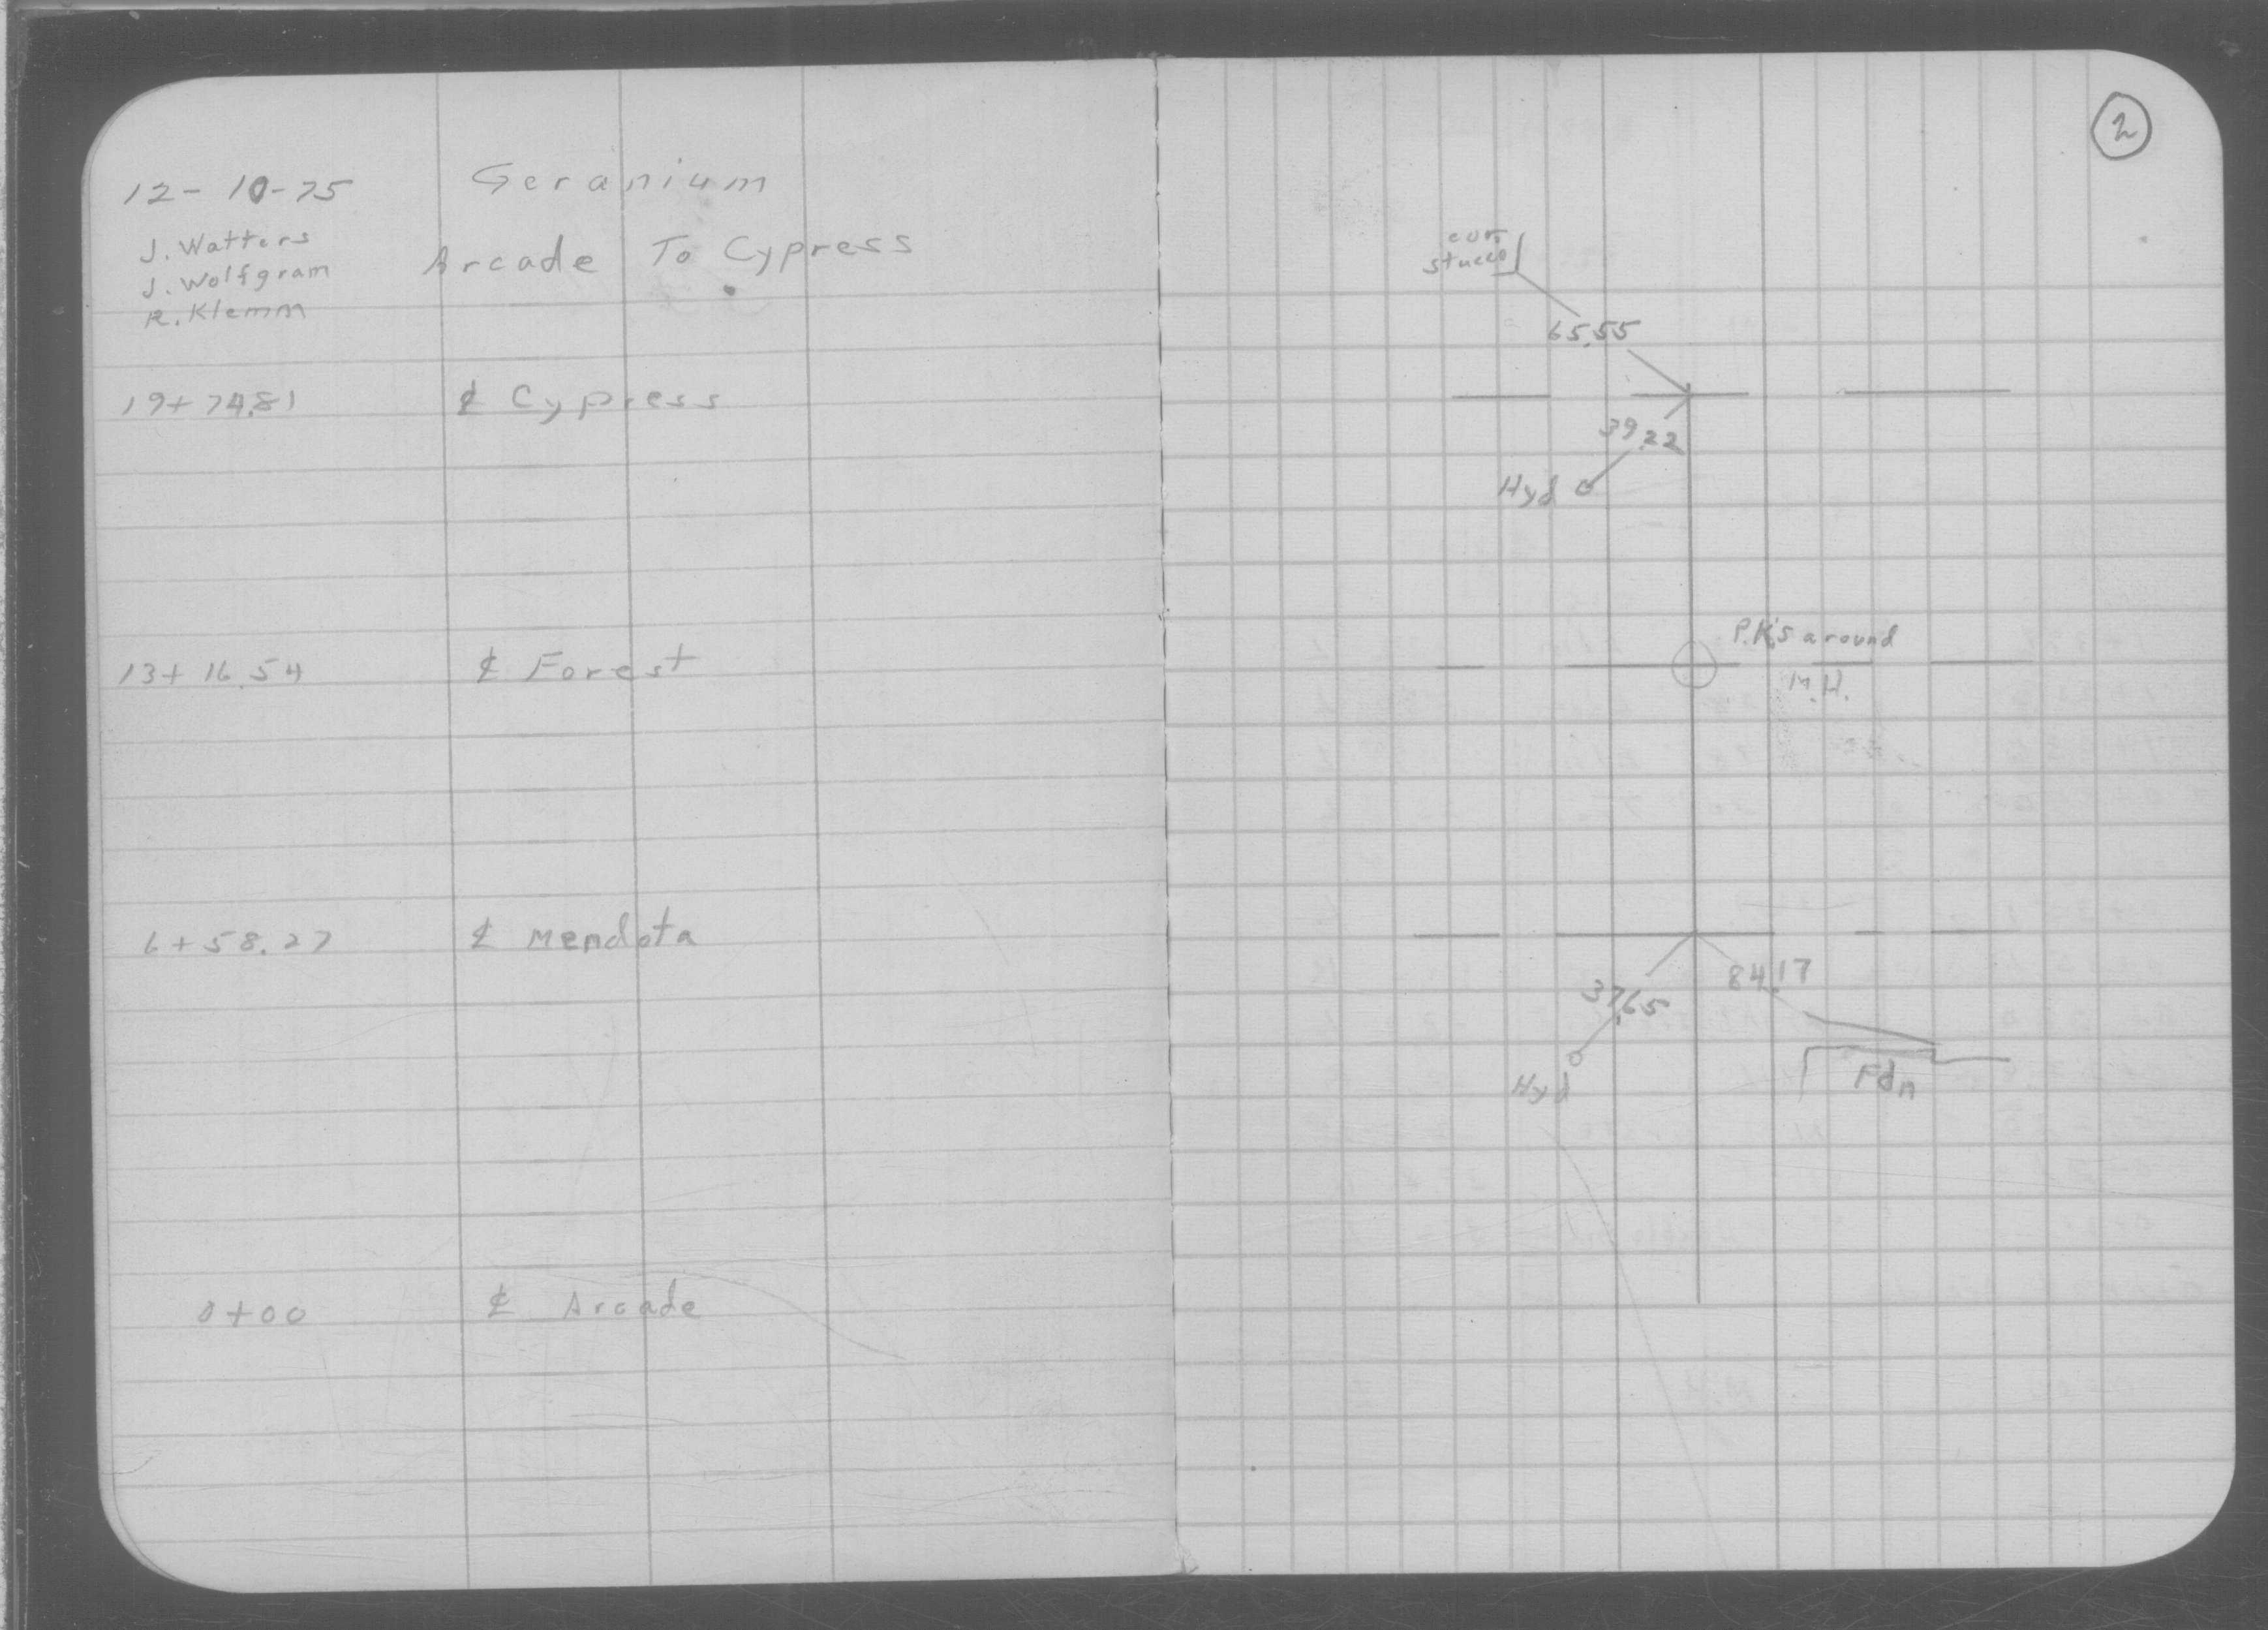 12-10-75
Geranium
J. Watters
J. Wolfgram
R. Klemm
Arcade To Cypress
19+74.81 ₵ Cypress
13+16.54 ₵ Forest
6+58.27 ₵ Mendota
0+00 ₵ Arcade
2
cor.
stucco
65.55
39.22
Hyd
P.K.'s around
M.H.
37.65
84.17
Hyd
Fdn